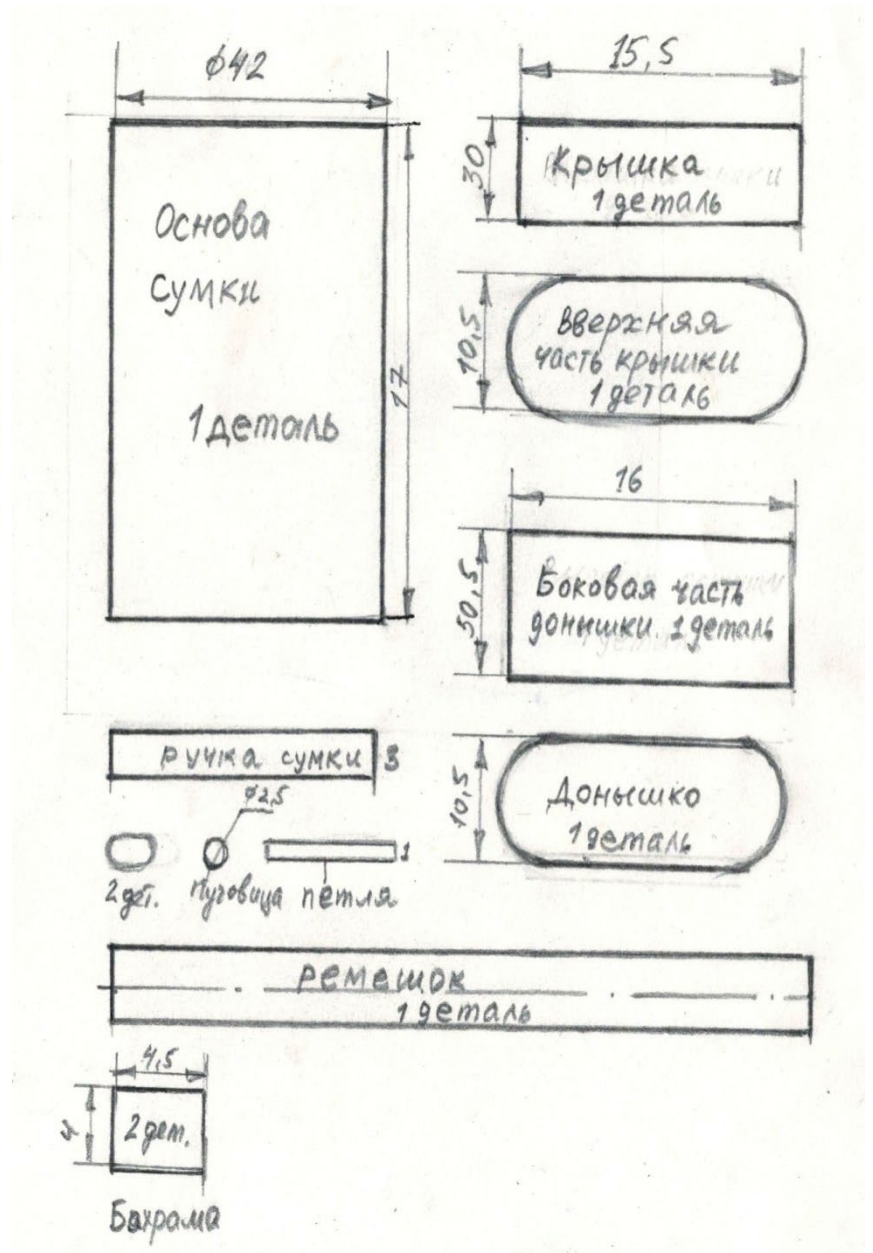 ⌀42
Основа
сумки
1 деталь
17
15,5
30
Крышка
1 деталь
10,5
Вверхняя
часть крышки
1 деталь
16
50,5
Боковая часть
донышки. 1 деталь
ручка сумки 3
⌀2,5
1
2 дет. Пуговица петля
10,5
Донышко
1 деталь
ремешок
1 деталь
4,5
4
2 дет.
Бахрама